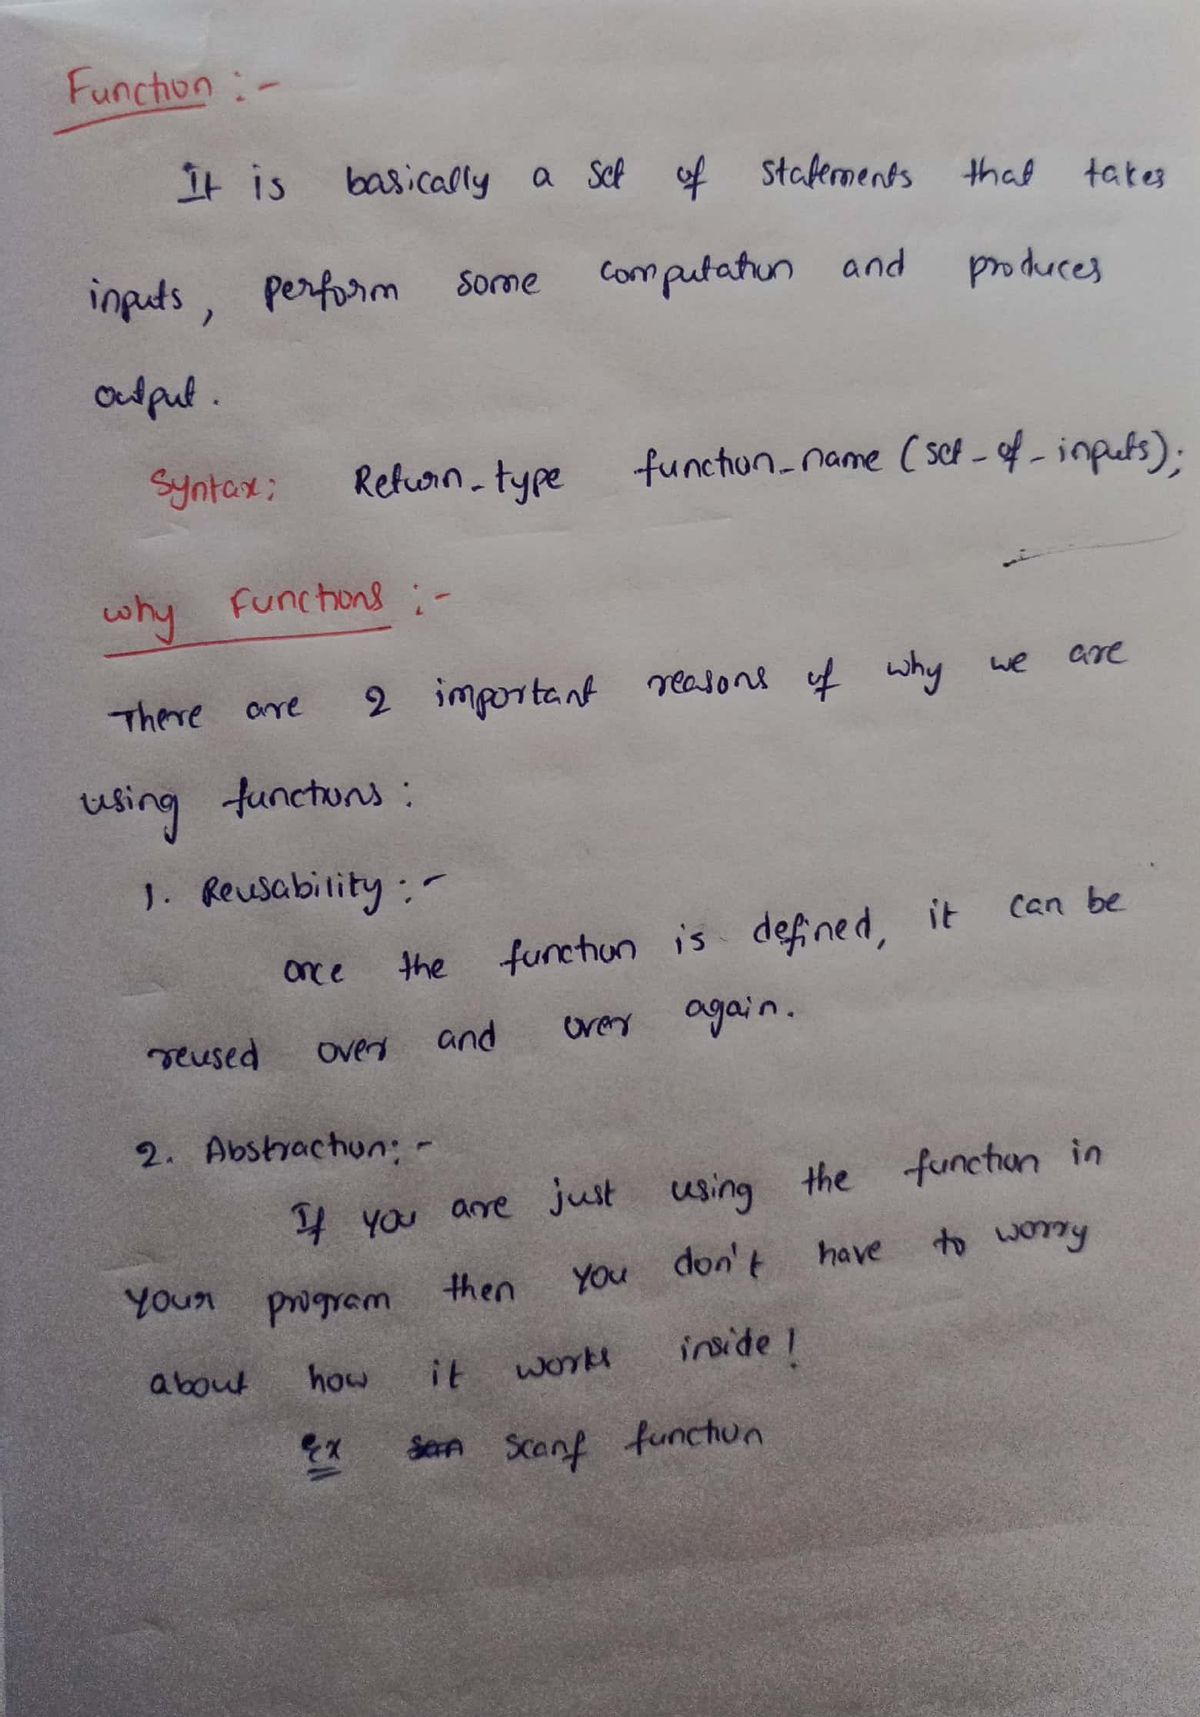 Function :-
It is basically a set of statements that takes
inputs, perform some computation and produces
output.
Syntax: Return_type function_name (set_of_inputs);
why Functions :-
There are 2 important reasons of why we are
using functions :
1. Reusability :-
once the function is defined, it can be
reused over and over again.
2. Abstraction: -
If you are just using the function in
your program then you don't have to worry
about how it works inside!
Ex scanf function